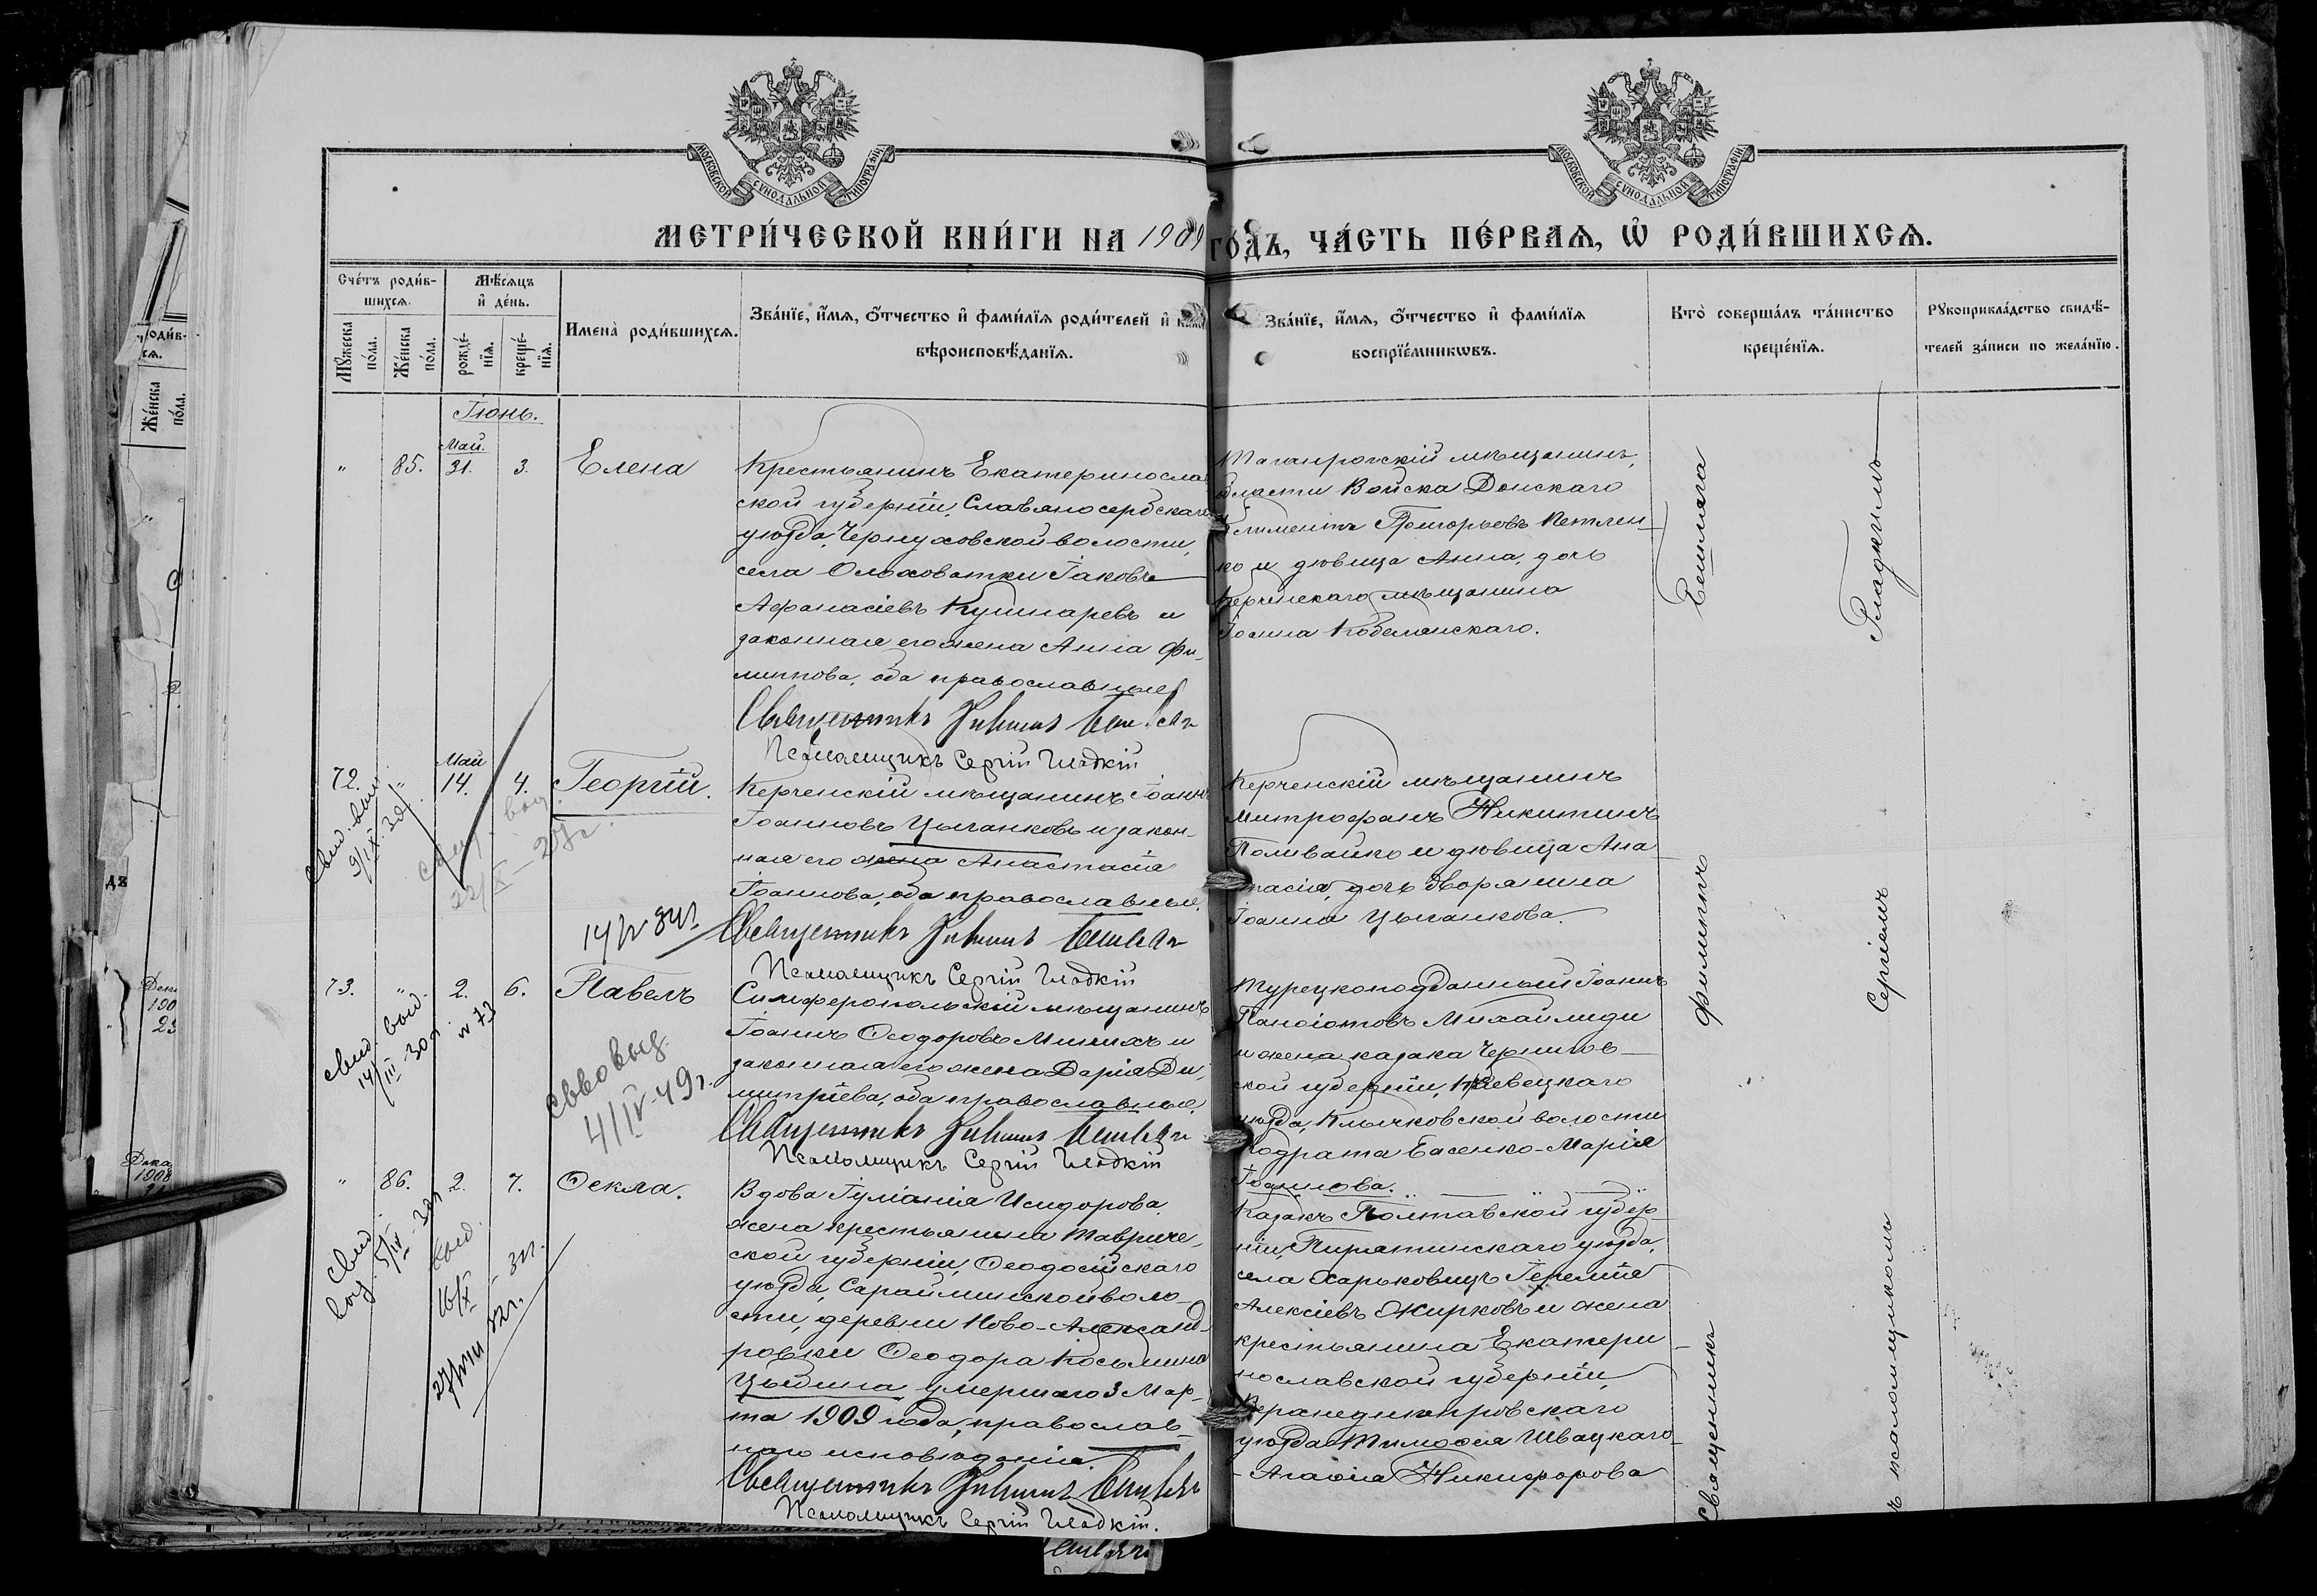 МОСКОВСКОЙ СѴНОДАЛЬНОЙ ТИПОГРАФІИ
МОСКОВСКОЙ СѴНОДАЛЬНОЙ ТИПОГРАФІИ
МЕТРИ́ЧЕСКОЙ КНИ́ГИ НА 1909 ГО́ДЪ, ЧА́СТЬ ПЕ́РВАѦ, Ѡ҆ РОДИ́ВШИХСѦ.
Сче́тъ роди́в-
шихсѧ.
Мꙋ́жеска по́ла.
Же́нска по́ла.
Мѣ́сѧцъ
и҆ де́нь.
рожде́-
нїѧ.
креще́-
нїѧ.
Имена̀ роди́вшихсѧ.
Зва́нїе, и҆́мѧ, ѻ҆́тчество и҆ фами́лїѧ роди́телей и҆
вѣроисповѣ́данїѧ.
Зва́нїе, и҆́мѧ, ѻ҆́тчество и҆ фами́лїѧ
воспрїе́мникѡвъ.
Кто̀ соверша́лъ та́инство
креще́нїѧ.
Рꙋкоприкла́дство свидѣ́-
телей за́писи по жела́нїю.
Іюнь.
Май.
" 85. 31. 3. Елена
Крестьянинъ Екатеринослав
ской губерніи, Славяносербскаго
уѣзда, Чернуховской волости,
села Ольховатки Іаковъ
Афанасіевъ Кушнаревъ и
законная его жена Анна Фи-
липпова, оба православные
Священникъ Филиппъ
Псаломщикъ Сергій Гладкій
Таганрогскій мѣщанинъ,
области Войска Донскаго
Климентъ Григорьевъ Петлен-
ко и дѣвица Анна, дочь
Керченскаго мѣщанина
Іоанна Кобелянскаго.
Май
72. " 14. 4. Георгій.
Свид. выд.
9/IX 30
22/X–27г.
14/IV 34г.
Керченскій мѣщанинъ Іоаннъ
Іоанновъ Цыганковъ и закон-
ная его жена Анастасія
Іоаннова, оба православные.
Священникъ Филиппъ
Псаломщикъ Сергій Гладкій
Керченскій мѣщанинъ
Митрофанъ Никитинъ
Поливайко и дѣвица Ана
стасія, дочь дворянина
Іоанна Цыганкова.
73. " 2. 6. Павелъ
свид. выд.
14/III–30г. N 73
4/IV–49г.
Симферопольскій мѣщанинъ
Іоаннъ Ѳеодоровъ и
законная его жена Дарія Ди-
митріева, оба православные.
Священникъ Филиппъ
Псаломщикъ Сергій Гладкій
Турецкоподданный Іоаннъ
Панаіотовъ Михаилиди
и жена казака Чернигов-
ской губерніи,
уѣзда, Клычковской волости
Кодрата Басенко-Марія
Іоаннова.
" 86. 2. 7. Ѳекла.
Свид.
выд. 5/IV–30г.
выд.
16/X – 31г.
27/VIII 32г.
Вдова Іуліанія Исидорова,
жена крестьянина Тавриче-
ской губерніи, Ѳеодосійскаго
уѣзда, Сарайминской воло-
сти, деревни Ново-Александ-
ровки Ѳеодора Косьмина
Цыбина, умершаго 3 Мар-
та 1909 года, православ-
наго исповѣданія.
Священникъ Филиппъ
Псаломщикъ Сергій Гладкій.
Казакъ Полтавской губер-
ніи, Пирятинскаго уѣзда,
села Харьковицъ Іеремія
Алексіевъ Жирковъ и жена
крестьянина Екатери-
нославской губерніи,
Верхнеднѣпровскаго
уѣзда Тимоѳея Швацкаго
- Агаѳія Никифорова
Священникъ Филиппъ
съ псаломщикомъ Сергіемъ Гладкимъ